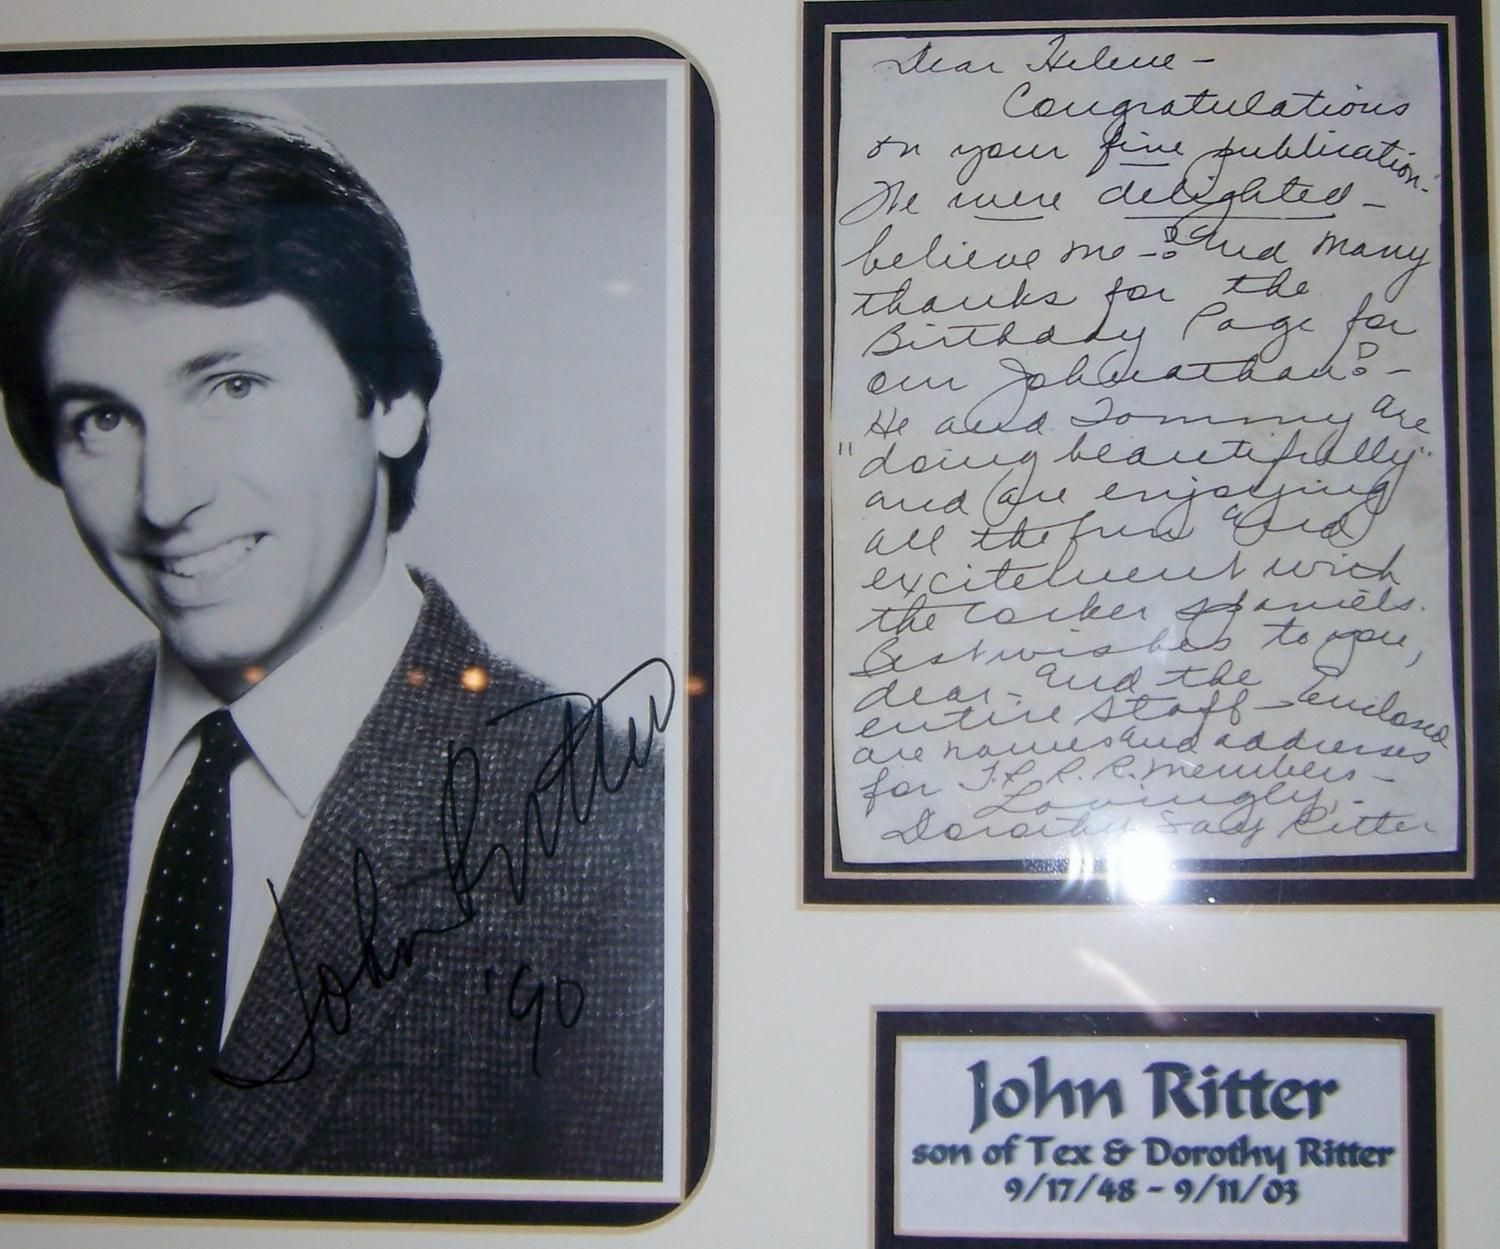 John Ritter
'90
Dear Helene -
Congratulations
on your fine publication.
We were delighted -
believe me -! And many
thanks for the
Birthday Page for
our Johnathan! -
He and Tommy are
"doing beautifully"
and are enjoying
all the fun and
excitement with
the cocker spaniels.
Best wishes to you,
dear - and the
entire staff - Enclosed
are names and addresses
for members -
Lovingly,
Dorothy Fay Ritter
John Ritter
son of Tex & Dorothy Ritter
9/17/48 - 9/11/03